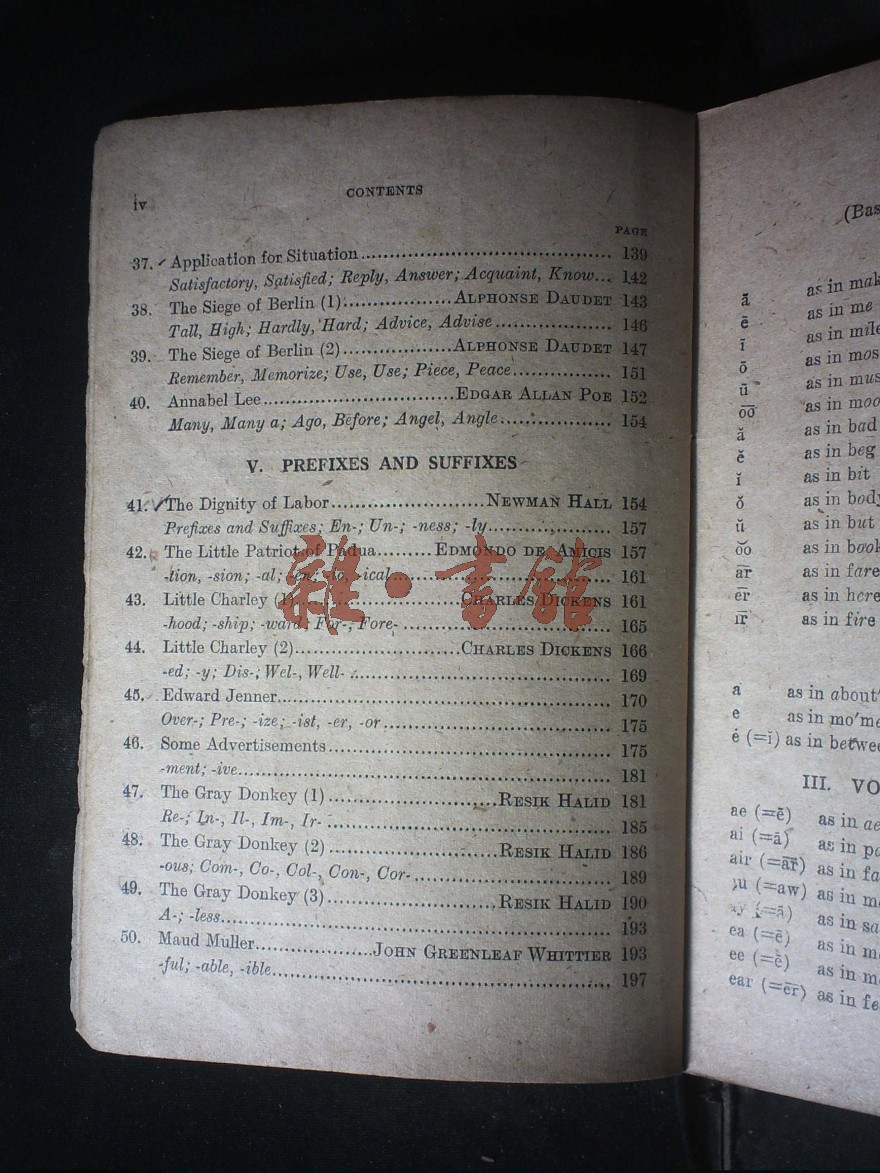 iv
CONTENTS
PAGE
37. Application for Situation........ 139
Satisfactory, Satisfied; Reply, Answer; Acquaint, Know... 142
38. The Siege of Berlin (1)........ALPHONSE DAUDET 143
Tall, High; Hardly, Hard; Advice, Advise........ 146
39. The Siege of Berlin (2)........ALPHONSE DAUDET 147
Remember, Memorize; Use, Use; Piece, Peace........ 151
40. Annabel Lee........EDGAR ALLAN POE 152
Many, Many a; Ago, Before; Angel, Angle........ 154
V. PREFIXES AND SUFFIXES
41. The Dignity of Labor........NEWMAN HALL 154
Prefixes and Suffixes; En-; Un-; -ness; -ly........ 157
42. The Little Patriot of Padua........EDMONDO DE AMICIS 157
-tion, -sion; -al; -en; -ical........ 161
43. Little Charley (1)........CHARLES DICKENS 161
-hood; -ship; -ward; For-, Fore-........ 165
44. Little Charley (2)........CHARLES DICKENS 166
-ed; -y; Dis-; Wel-, Well-........ 169
45. Edward Jenner........ 170
Over-; Pre-; -ize; -ist, -er, -or........ 175
46. Some Advertisements........ 175
-ment; -ive........ 181
47. The Gray Donkey (1)........RESIK HALID 181
Re-; In-, Il-, Im-, Ir-........ 185
48. The Gray Donkey (2)........RESIK HALID 186
-ous; Com-, Co-, Col-, Con-, Cor-........ 189
49. The Gray Donkey (3)........RESIK HALID 190
A-; -less........ 193
50. Maud Muller........JOHN GREENLEAF WHITTIER 193
-ful; -able, -ible........ 197
雜·書館
(Bas
ā as in mak
ē as in me
ī as in mile
ō as in mos
ū as in mus
o͞o as in moo
ă as in bad
ĕ as in beg
ĭ as in bit
ŏ as in body
ŭ as in but
o͝o as in book
a͞r as in fare
e͞r as in here
i͞r as in fire
a as in about'
e as in mo'me
ė (=ĭ) as in betwee
III. VO
ae (=ē) as in ae
ai (=ā) as in pa
air (=a͞r) as in fa
au (=aw) as in m
ay (=ā) as in sa
ea (=ē) as in m
ee (=ē) as in m
ear (=e͞r) as in fe